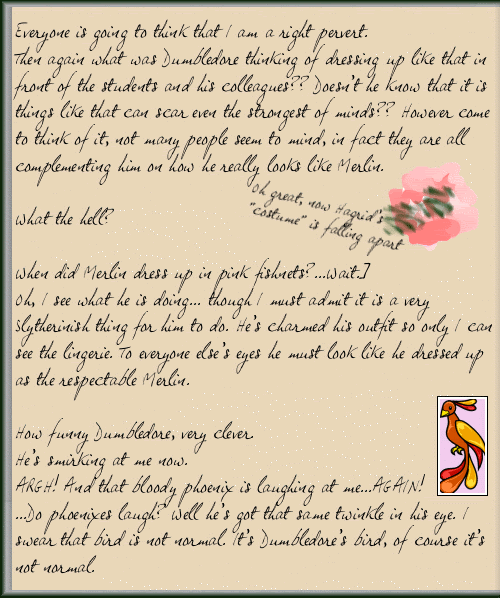 Everyone is going to think that I am a right pervert.
Then again what was Dumbledore thinking of dressing up like that in
front of the students and his colleagues?? Doesn't he know that it is
things like that can scar even the strongest of minds?? However come
to think of it, not many people seem to mind, in fact they are all
complementing him on how he really looks like Merlin.
Oh great, now Hagrid's
"costume" is falling apart
What the hell?
When did Merlin dress up in pink fishnets?...Wait.]
Oh, I see what he is doing... though I must admit it is a very
Slytherinish thing for him to do. He's charmed his outfit so only I can
see the lingerie. To everyone else's eyes he must look like he dressed up
as the respectable Merlin.
How funny Dumbledore, very clever.
He's smirking at me now.
ARGH! And that bloody phoenix is laughing at me...AGAIN!
...Do phoenixes laugh? Well he's got that same twinkle in his eye. I
swear that bird is not normal. It's Dumbledore's bird, of course it's
not normal.